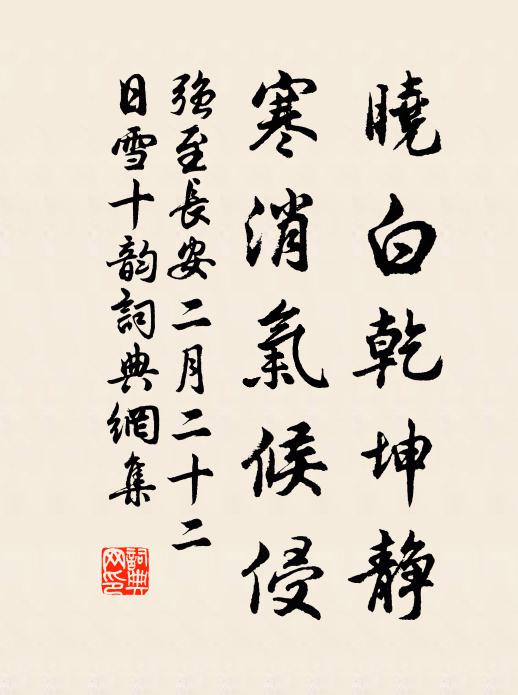 曉白乾坤靜
寒消氣候侵
強至長安二月二十二
日雪十韵詞典網集
詞典
网印